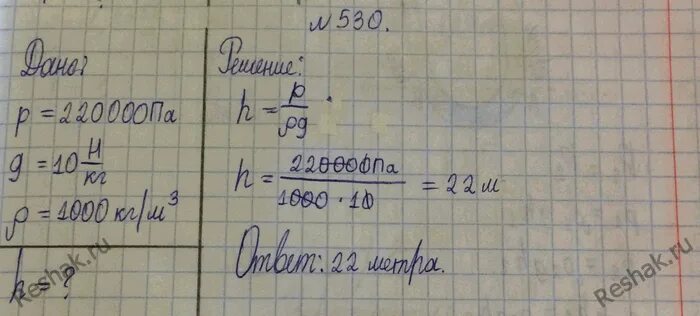 №530.
Дано:
p = 220000Па
g = 10 Н/кг
ρ = 1000 кг/м³
h = ?
Решение:
h = p/ρg
h = 220000Па/1000 · 10 = 22м
Ответ: 22 метра.
Reshak.ru
Reshak.ru